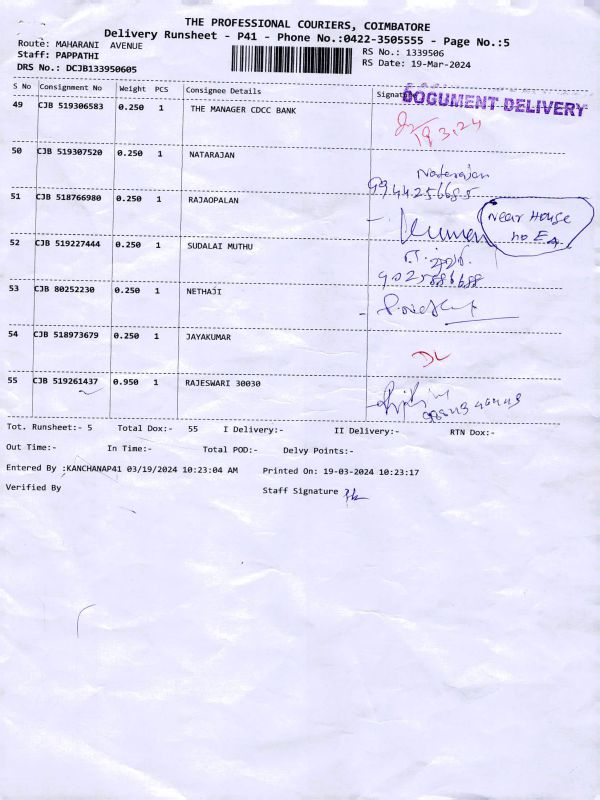 THE PROFESSIONAL COURIERS, COIMBATORE
Delivery Runsheet - P41 - Phone No.:0422-3505555 - Page No.:5
Route: MAHARANI AVENUE
RS No.: 1339506
Staff: PAPPATHI
RS Date: 19-Mar-2024
DRS No.: DCJB133950605
S No Consignment No Weight PCS Consignee Details Signature
DOCUMENT DELIVERY
49 CJB 519306583 0.250 1 THE MANAGER CDCC BANK
19 3.24
50 CJB 519307520 0.250 1 NATARAJAN
Natarajan
51 CJB 518766980 0.250 1 RAJAOPALAN
Near House
52 CJB 519227444 0.250 1 SUDALAI MUTHU
53 CJB 80252230 0.250 1 NETHAJI
54 CJB 518973679 0.250 1 JAYAKUMAR
55 CJB 519261437 0.950 1 RAJESWARI 30030
Tot. Runsheet:- 5 Total Dox:- 55 I Delivery:- II Delivery:- RTN Dox:-
Out Time:- In Time:- Total POD:- Delvy Points:-
Entered By :KANCHANAP41 03/19/2024 10:23:04 AM Printed On: 19-03-2024 10:23:17
Verified By Staff Signature